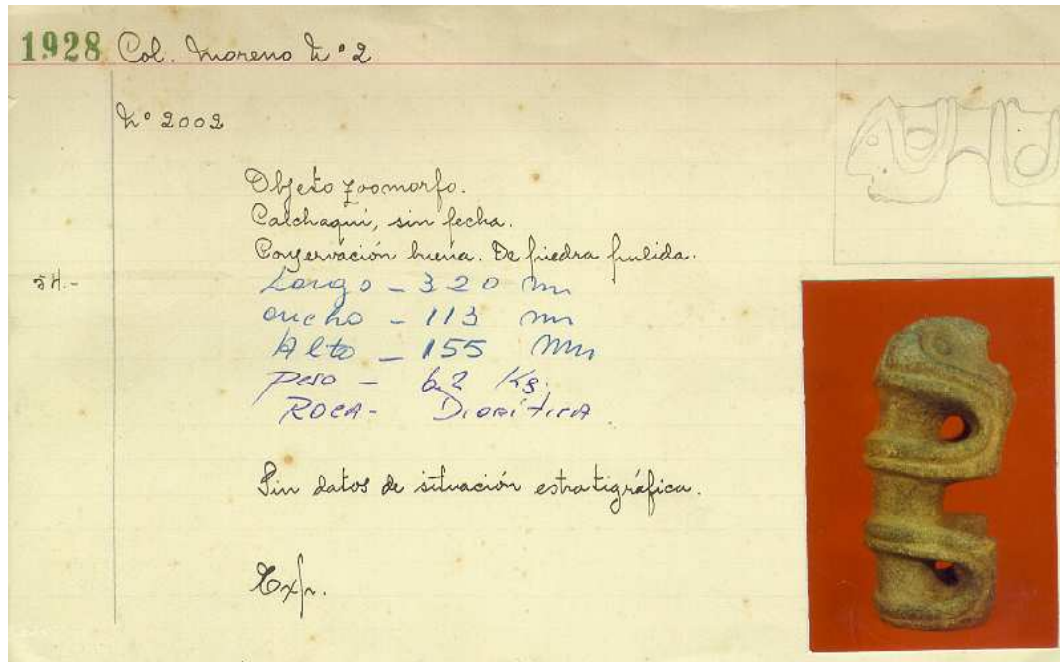 1928 Col. Moreno Nº 2
Nº 2002
Objeto zoomorfo.
Calchaqui, sin fecha.
Conservación buena. De piedra pulida.
Largo - 320 mm
ancho - 113 mm
Alto - 155 mm
peso - 6.2 Kg.
ROCA - Diorítica
Sin datos de situación estratigráfica.